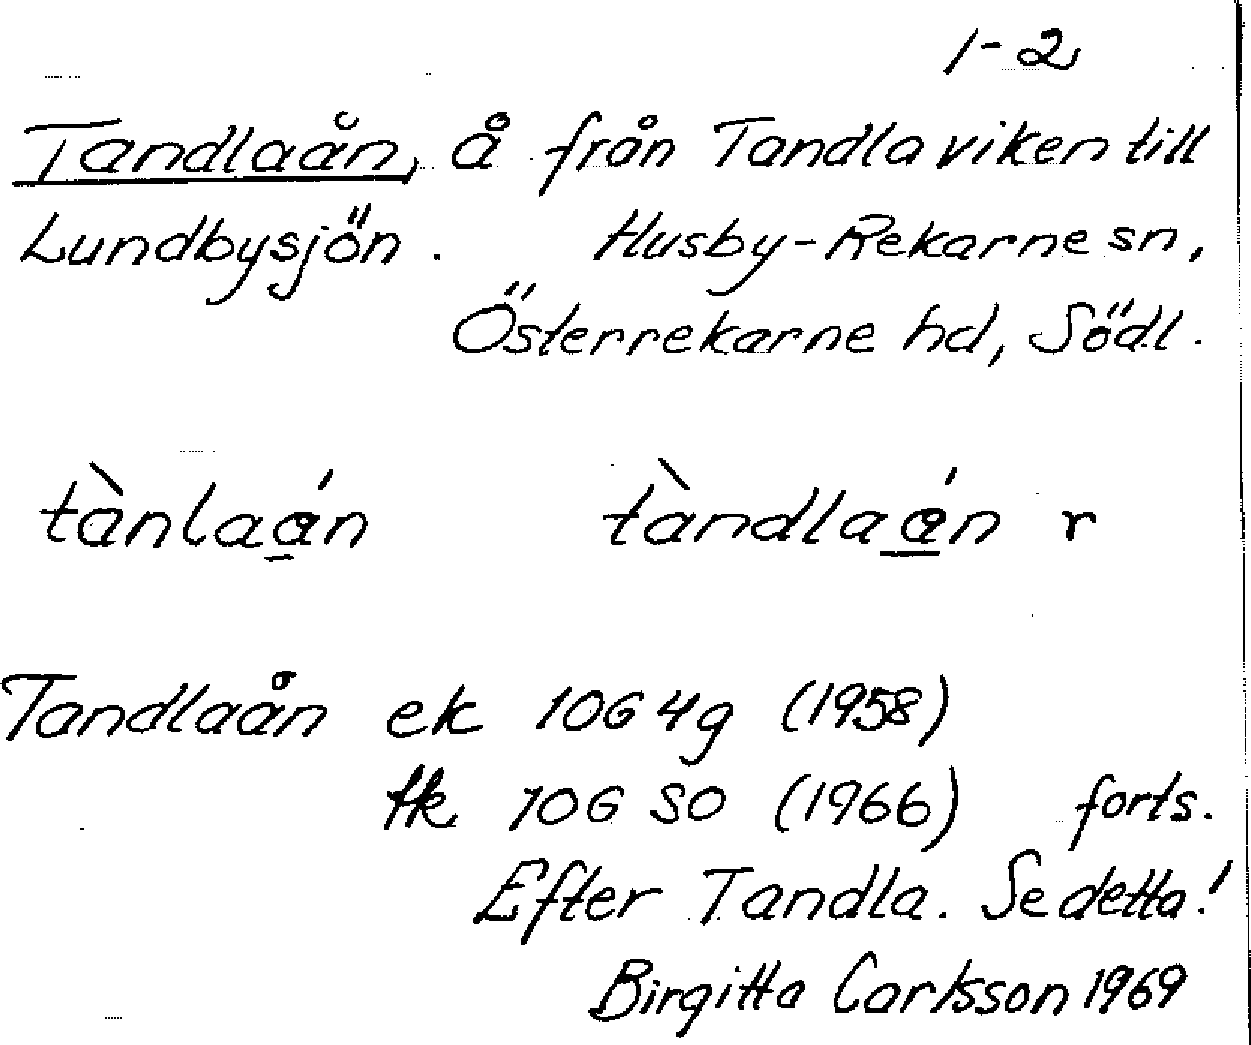 1-2
Tandlaån, å från Tandlaviken till
Lundbysjön. Husby-Rekarne sn,
Österrekarne hd, Södl.
tànlaá̲n tàndlaá̲n r
Tandlaån ek 10G 4g (1958)
tk 10G SO (1966) forts.
Efter Tandla. Se detta!
Birgitta Carlsson 1969